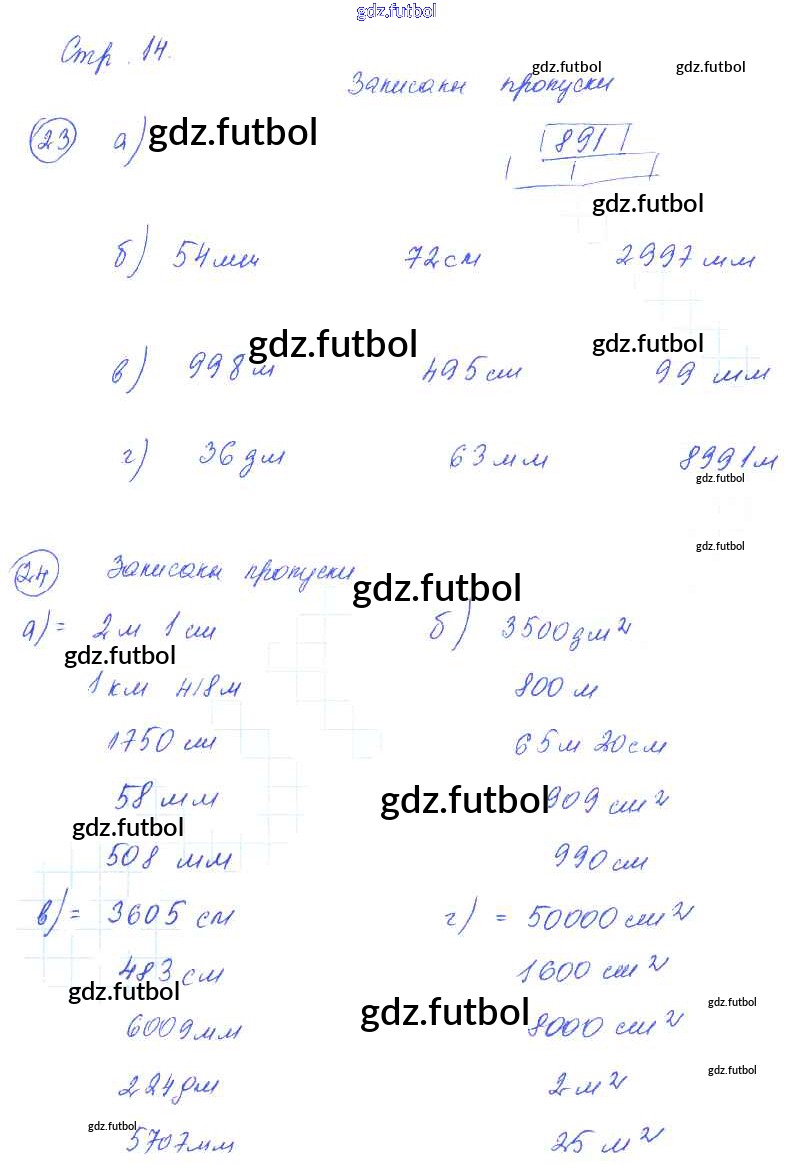 gdz.futbol
Стр. 14.
gdz.futbol gdz.futbol
Записаны пропуски
23 а) gdz.futbol 891
gdz.futbol
б) 54 мм 72 см 2997 мм
gdz.futbol gdz.futbol
в) 998 м 495 см 99 мм
г) 36 дм 63 мм 8991 м
gdz.futbol
gdz.futbol
24 Записаны пропуски
gdz.futbol
а) = 2 м 1 см б) 3500 дм²
gdz.futbol
1 км 418 м 800 м
1750 см 65 м 20 см
58 мм gdz.futbol 909 см²
gdz.futbol
508 мм 990 см
в) = 3605 см г) = 50000 см²
483 см 1600 см²
gdz.futbol gdz.futbol
gdz.futbol
6009 мм 8000 см²
gdz.futbol
224 дм 2 м²
gdz.futbol
5707 мм 25 м²